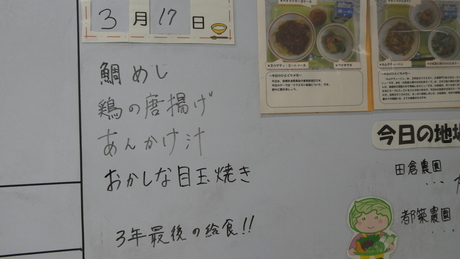 3月17日
鯛めし
鶏の唐揚げ
あんかけ汁
おかしな目玉焼き
3年最後の給食!!
今日の地場
田倉農園
都築農園